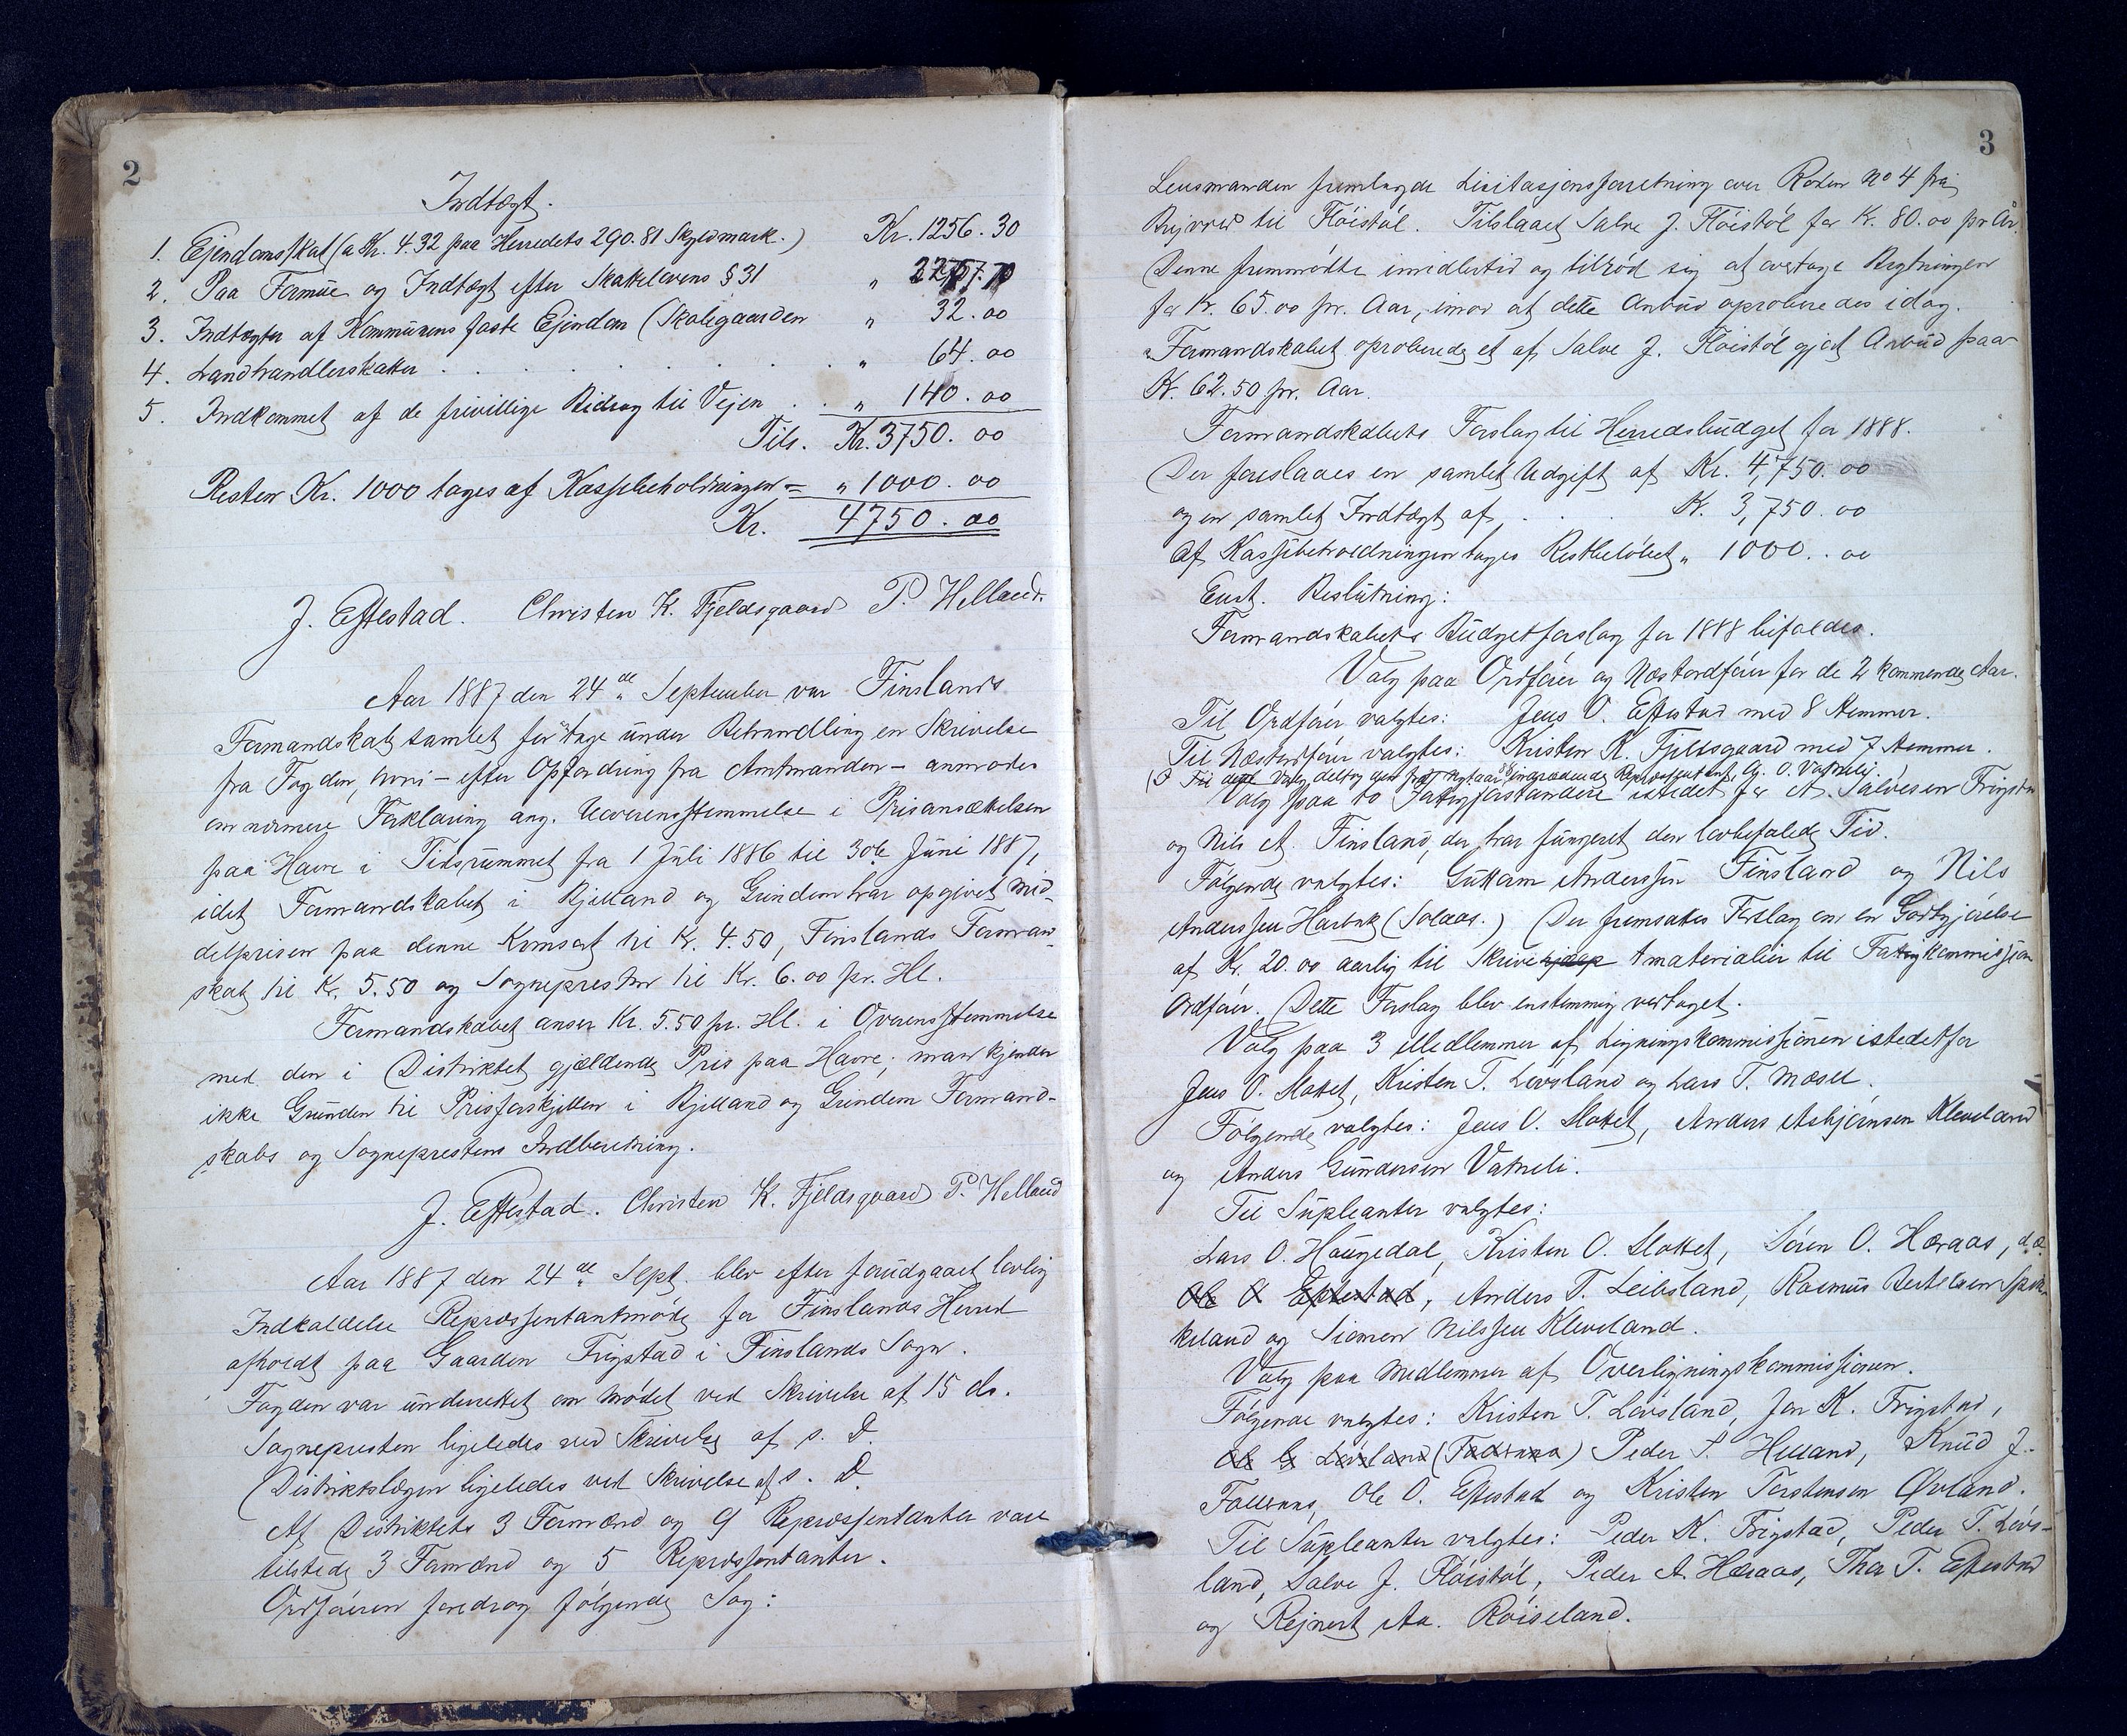 2
Indtægt.
1. Ejendomsskat (a Kr. 4.32 paa Herredets 290.81 Skyldmark.) Kr. 1256.30
2. Paa Formue og Indtægt efter Skattelovens § 31 „ 2257.70
3. Indtægter af Kommunens faste Ejendom (Skolegaarden „ 32.00
4. Landhandlerskatter . . . . . . „ 64.00
5. Indkommet af de frivillige Bidrag til Vejen . . „ 140.00
Tils. Kr. 3750.00
Resten Kr. 1000 tages af Kassebeholdningen = „ 1000.00
Kr. 4750.00
J. Eftestad. Christen K. Fjeldsgaard P. Helland.
Aar 1887 den 24de September var Finslands
Formandskab samlet for at tage under Behandling en Skrivelse
fra Fogden, hvori – efter Opfordring fra Amtmanden – anmodes
om nærmere Forklaring ang. Uoverensstemmelse i Prisansættelsen
paa Havre i Tidsrummet fra 1 Juli 1886 til 30te Juni 1887,
idet Formandskabet i Bjelland og Grindem har opgivet Mid-
delprisen paa denne Kornsort til Kr. 4.50, Finslands Forman-
skab til Kr. 5.50 og Sognepresten til Kr. 6.00 pr. Hl.
Formandskabet anser Kr. 5.50 pr. Hl. i Overensstemmelse
med den i Distriktet gjældende Pris paa Havre; man kjender
ikke Grunden til Prisforskjellen i Bjelland og Grindem Formand-
skabs og Sogneprestens Indberetning.
J. Eftestad. Christen K. Fjeldsgaard P. Helland
Aar 1887 den 24de Sept. blev efter forudgaaet lovlig
Indkaldelse Repræsentantmøde for Finslands Herred
afholdt paa Gaarden Frigstad i Finslands Sogn.
Fogden var underrettet om Mødet ved Skrivelse af 15 ds.
Sognepresten ligeledes ved Skrivelse af s. D.
Distriktslægen ligeledes ved Skrivelse af s. D.
Af Distriktets 3 Formænd og 9 Repræsentanter vare
tilstede 3 Formænd og 5 Repræsentanter.
Ordføreren foredrog følgende Sag:
3
Lensmanden fremlagde Lisitasjonsforretning over Roden No 4 fra
til Fløistøl. Tilslaaet Salve J. Fløistøl for Kr. 80.00 pr År.
Denne fremmødte imidlertid og tilbød sig at overtage Bygtningen
for Kr. 65.00 pr. Aar, imod at dette Anbud aproberedes idag.
Formandskabet aproberede et af Salve J. Fløistøl gjort Anbud paa
Kr. 62.50 pr. Aar.
Formandskabets Forslag til Herredsbudget for 1888.
Der foreslaaes en samlet Udgift af Kr. 4,750.00
og en samlet Indtægt af . . . Kr. 3,750.00
Af Kassebeholdningen tages Restbeløbet „ 1000.00
Enst. Beslutning:
Formandskabets Budgetforslag for 1888 bifaldes.
Valg paa Ordfører og Næstordfører for de 2 kommende Aar.
Til Ordfører valgtes: Jens O. Eftestad med 8 Stemmer.
Til Næstordfører valgtes: Kristen K. Fjeldsgaard med 7 Stemmer.
Valg deltog den fra Nytaar 88 indtrædende Repræsentant, Aj. O. Vatneli.
Valg paa to Fattigforstandere istedet for A. Salvesen Frigstad
og Nils A. Finsland, der har fungeret den lovbefalede Tid.
Følgende valgtes: Guttorm Anderssen Finsland og Nils
Anderssen Harbak (Solaas.) Der fremsattes Forslag om en Godtgjørelse
af Kr. 20.00 aarlig til Skrivehjælp materialier til Fattigkommission
Ordfører. Dette Forslag blev enstemmig vedtaget.
Valg paa 3 Medlemmer af Ligningskommissionen istedetfor
Jens O. Slottet, Kristen T. Løvsland og Lars T. Mæsel.
Følgende valgtes: Jens O. Slottet, Anders Asbjørnsen Kleveland
og Anders Gundersen Vatneli.
Til Supleanter valgtes:
Lars O. Haugedal, Kristen O. Slottet, Søren O. Høraas,
Ole O Eftestad, Anders T. Leibsland, Rasmus Bertelsen Spik-
keland og Siemen Nilssen Kleveland.
Valg paa Medlemmer af Overligningskommissionen.
Følgende valgtes: Kristen T. Løvsland, Jon K. Frigstad,
Ole G Løvsland (Faderaas) Peder S. Helland, Knud J.
Foss, Ole O. Eftestad og Kristen Torstensen Øvland.
Til Supleanter valgtes: Peder K. Frigstad, Peder T. Løvs-
land, Salve J. Fløistøl, Peder A. Høraas, Thor T. Eftestad
og Rejnert Aa. Røiseland.